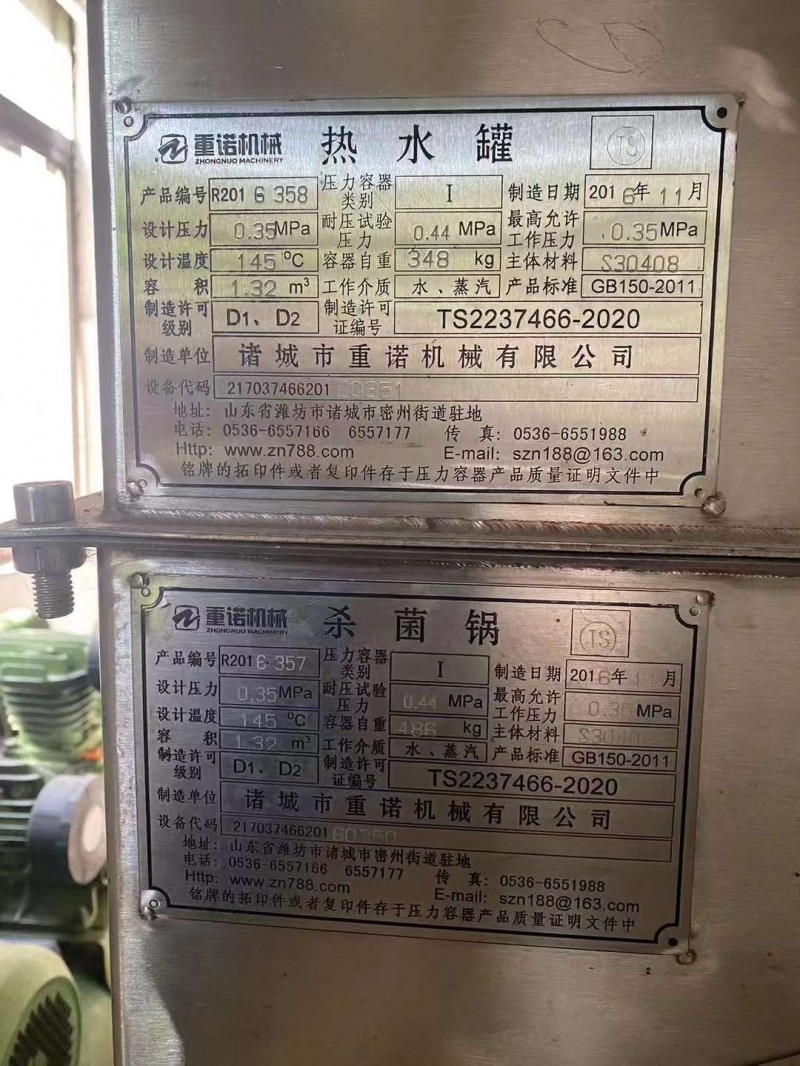 重诺机械 热水罐 TS
ZHONGNUO MACHINERY
产品编号 R2016 358 压力容器类别 I 制造日期 2016年11月
设计压力 0.35MPa 耐压试验压力 0.44 MPa 最高允许工作压力 0.35MPa
设计温度 145 ℃ 容器自重 348 kg 主体材料 S30408
容积 1.32 m³ 工作介质 水、蒸汽 产品标准 GB150-2011
制造许可级别 D1、D2 制造许可证编号 TS2237466-2020
制造单位 诸城市重诺机械有限公司
设备代码 21703746620160351
地址: 山东省潍坊市诸城市密州街道驻地
电话: 0536-6557166 6557177 传 真: 0536-6551988
Http: www.zn788.com E-mail: szn188@163.com
铭牌的拓印件或者复印件存于压力容器产品质量证明文件中
重诺机械 杀菌锅 TS
ZHONGNUO MACHINERY
产品编号 R2016 357 压力容器类别 I 制造日期 2016年11月
设计压力 0.35MPa 耐压试验压力 0.44 MPa 最高允许工作压力 0.35MPa
设计温度 145 ℃ 容器自重 486 kg 主体材料
容积 1.32 m³ 工作介质 水、蒸汽 产品标准 GB150-2011
制造许可级别 D1、D2 制造许可证编号 TS2237466-2020
制造单位 诸城市重诺机械有限公司
设备代码 21703746620160350
地址: 山东省潍坊市诸城市密州街道驻地
电话: 0536-6557166 6557177 传 真: 0536-6551988
Http: www.zn788.com E-mail: szn188@163.com
铭牌的拓印件或者复印件存于压力容器产品质量证明文件中